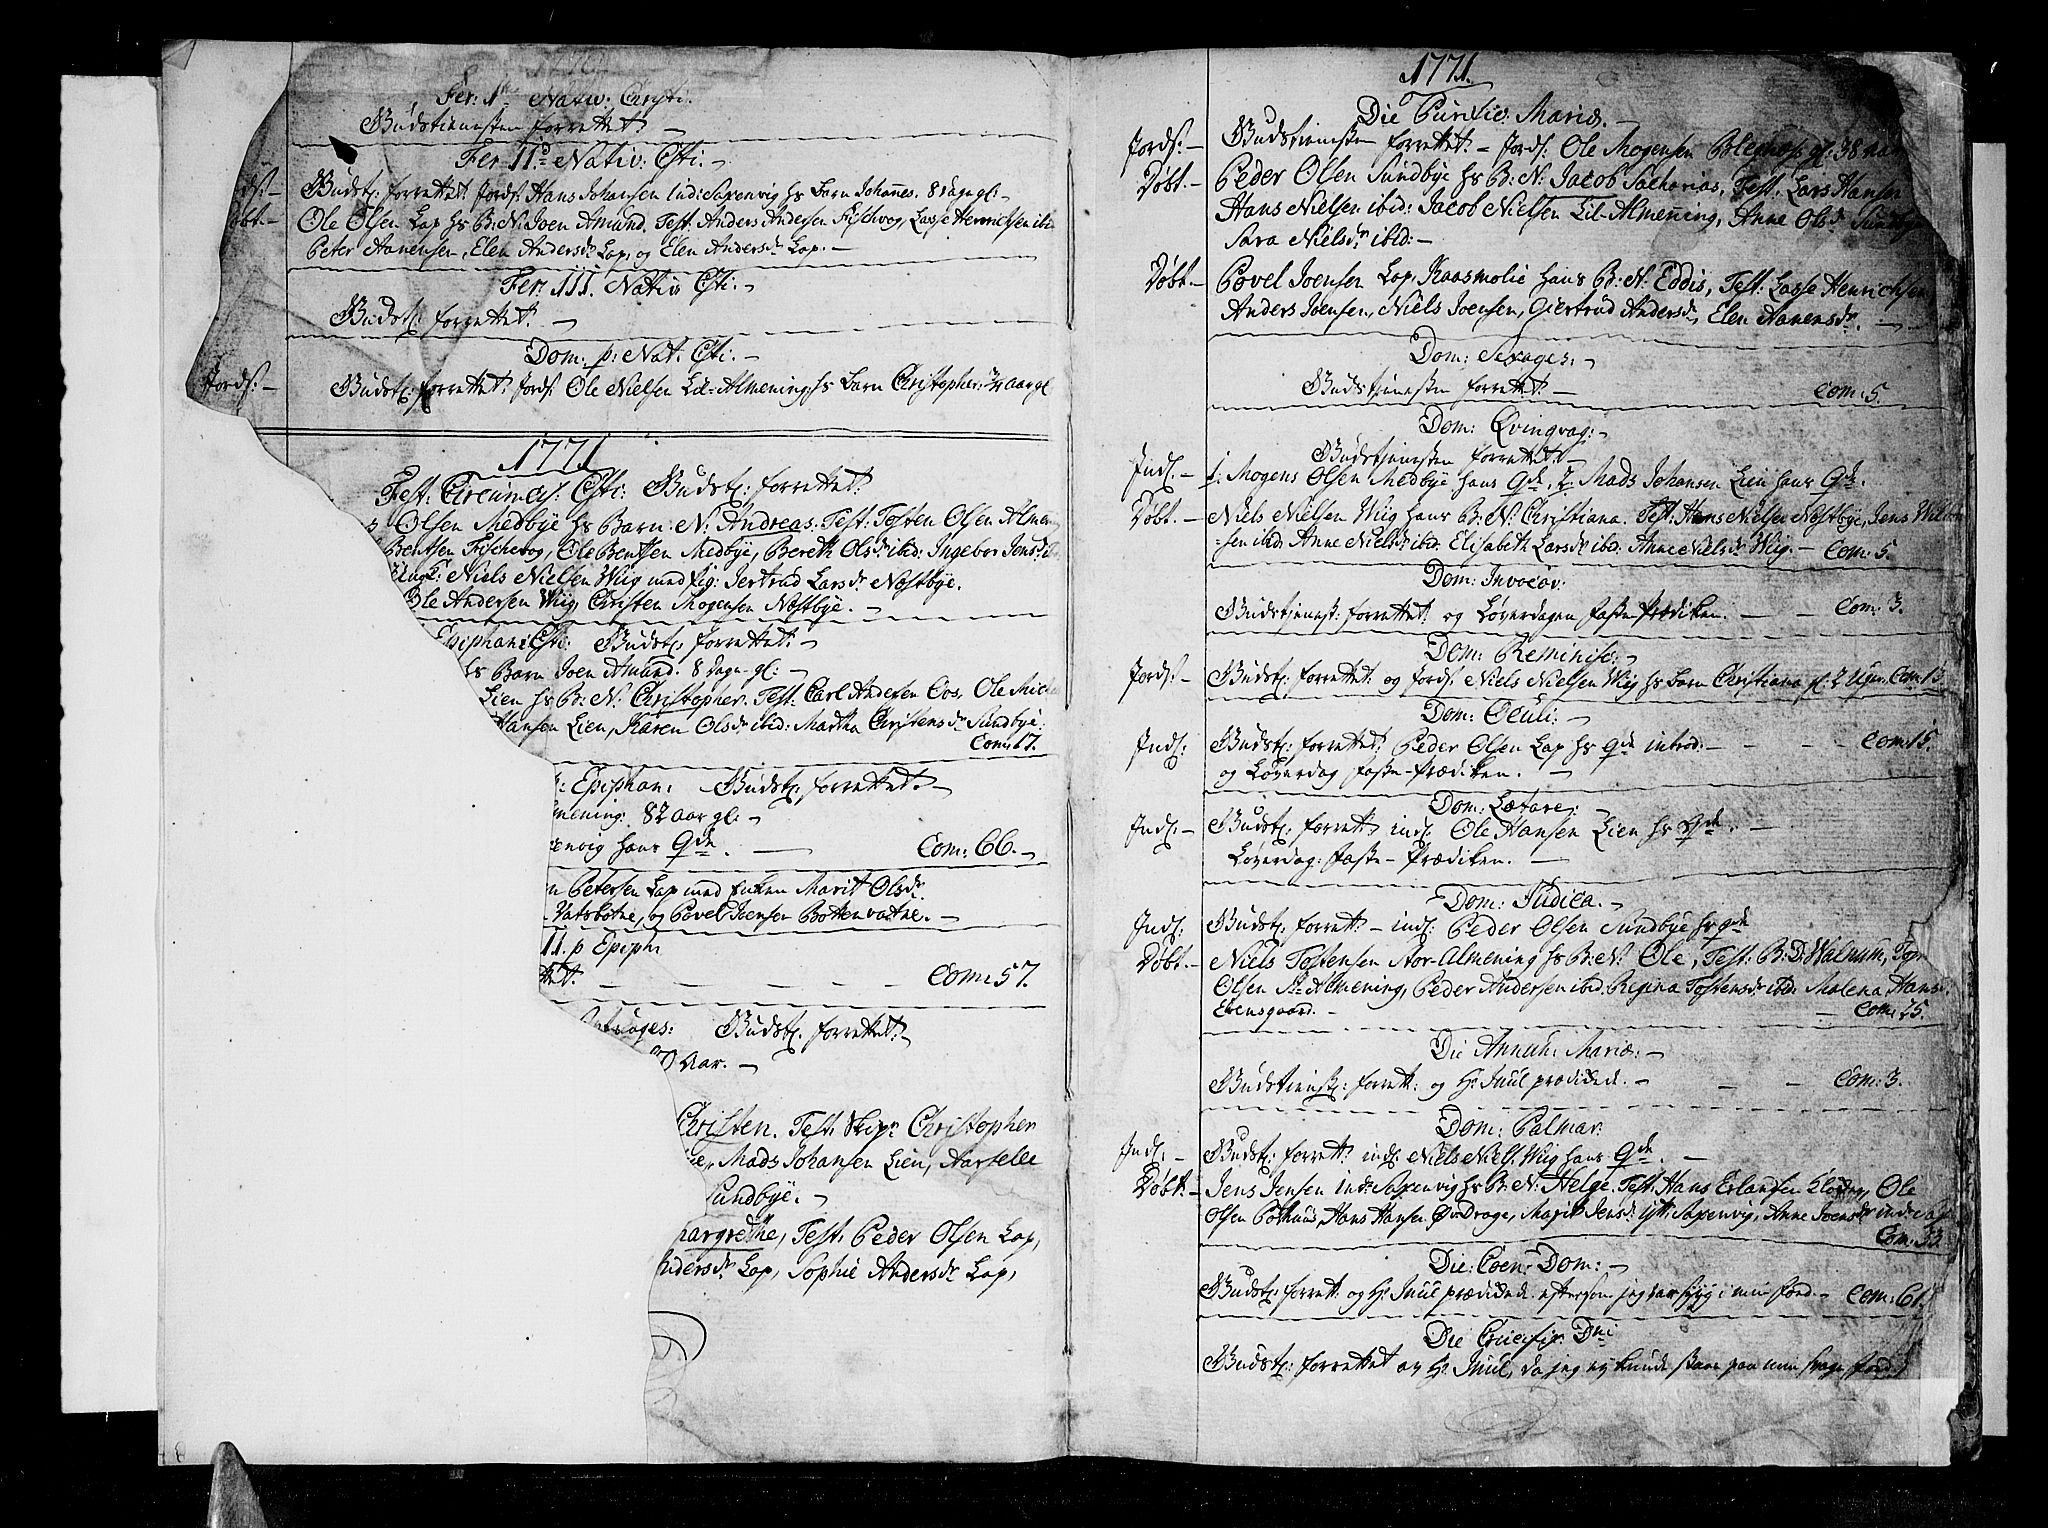 1770
Fer: 1ma Nativ: Christi.
Gudstienesten forrettet. –
Fer. IId Nativ: Χsti. –
Jords: – Gudstj: forrettet. Jords: Hans Johansen ind: Saxenvig hs Barn Johannes. 8 dage gl: –
Døbt – Ole Olsen Lap hs B: N: Joen Amund. Test: Anders Andersen Fischvog, Lasse Henrichsen ibid
Peter Aanensen, Elen Andersdr Lap, og Elen Andersdr Lap. –
Fer: III. Nativ: Χsti. –
Gudstj: forrettet. –
Dom: p: Nat: Χsti. –
Jords: – Gudstj: forrettet. Jords: Ole Nielsen Lil-Almening hs Barn Christopher. 3/4 aar gl
1771
Fest: Circumcis: Χsti: Gudstj: forrettet.
Olsen Medbye hs Barn: N: Andreas. Test: Tosten Olsen Almen
Bentsen Fischvog, Ole Bentsen Medbye, Bereth Olsdr ibid: Ingebor Jensdr ibid
Niels Nielsen Wiig med pig: Jertrud Larsdr Næstbye.
Ole Andersen Wiig, Christen Mogensen Næstbye. –
Epiphan: Χsti: Gudstj: forrettet. –
hs Barn Joen Amund. 8 dage gl: –
Lien hs B: N: Christopher. Test: Carl Andersen Oos, Ole Mich
Hansen Lien, Karen Olsdr ibid: Martha Christensdr Sundbye:
Com: 17.
Epiphan: Gudstj: forrettet. –
mening: 82 aar gl: –
envig hans Qde. – Com: 66. –
n Petersen Lap med Enken Marit Olsdr
Vatsbotne, og Povel Joensen Bottenvatne. –
II. p Epiph
ttet. – – – – Com: 57.
Septuages: Gudstj: forrettet. –
Aar. –
Christen. Test: Skipr Christopher
Mads Johansen Lien,
Sundbye. –
Margrethe, Test: Peder Olsen Lap,
Andersdr Lap, Sophie Andersdr Lap,
1771.
Die Purific: Mariæ. –
Jords: – Gudstienesten forrettet. – Jords: Ole Mogensen gl: 38 aar
Døbt. – Peder Olsen Sundbye hs B: N: Jacob Sacharias, Test: Lars Hansen
Hans Nielsen ibid: Jacob Nielsen Lil-Almening, Anne Olsdr Sundbye
Sara Nielsdr ibid: –
Døbt – Povel Joensen Lap, Kaasmolie hans B: N: Eddis, Test: Lasse Henrichsen
Anders Joensen, Niels Joensen, Giertrud Andersdr, Elen Aanensdr. –
Dom: Sexages: –
Gudstjenesten forrettet. – Com: 5.
Dom: Qvinqvag: –
Gudstjenesten forrettet. –
Indl: – 1: Mogens Olsen Medbye hans Qde, 2: Mads Johansen Lien hans Qde.
Døbt. – Niels Nielsen Wiig hans B: N: Christiana. Test: Hans Nielsen Næstbye, Jens
sen ibid: Anne Nielsdr ibid: Elisabeth Larsdr ibid: Anne Nielsdr Wiig. – Com: 5.
Dom: Invocav:
Gudstjenest: forrettet og Løverdagen Faste-Prædiken. – – Com: 3.
Dom: Reminisc: –
Jords: – Gudstj: forrettet og Jords: Niels Nielsen Wiig hs Barn Christiana gl: 2 Uger. Com: 13
Dom: Oculi: –
Indl: Gudstj: forrettet. Peder Olsen Lap hs Qde introd: – – – – Com: 15.
og Løverdag Faste-Prædiken. –
Dom: Lætare: –
Indl: – Gudstj: forrett: indl: Ole Hansen Lien hs Qde. –
Løverdag: Faste-Prædiken. –
Dom: Judica. –
Indl: Gudstj: forrett – indl: Peder Olsen Sundbye hs qde
Døbt. – Niels Tostensen Stor-Almening hs B: N: Ole, Test: B: D: Walnum,
Olsen St: Almening, Peder Andersen ibid: Regina Tostensdr ibid: Malena Hans
Ebensgaard. – – Com: 25.
Die Annunt: Mariæ: –
Gudstienst: forrett: og Hr Juul prædikede. – – – Com: 3.
Dom: Palmar:
Indl: – Gudstj: forrett: indl: Niels Niels: Wiig hans Qde. –
Døbt: – Jens Jensen ind: Saxenvig hs B: N: Helge. Test: Hans Erlandsen Ole
Olsen Hans Hansen Marit Jensdr ytt: Saxenvig, Anne Joensdr ind: Sax
Com: 33.
Die: Coen: Dom: –
Gudstj: forrett: og Hr Juul prædikede eftersom jeg var syg i min Food. – Com: 61.
Die Crucifix: Dni
Gudstj: forrettet av Hr Juul, da jeg ey kunde staae paa min svage Food.